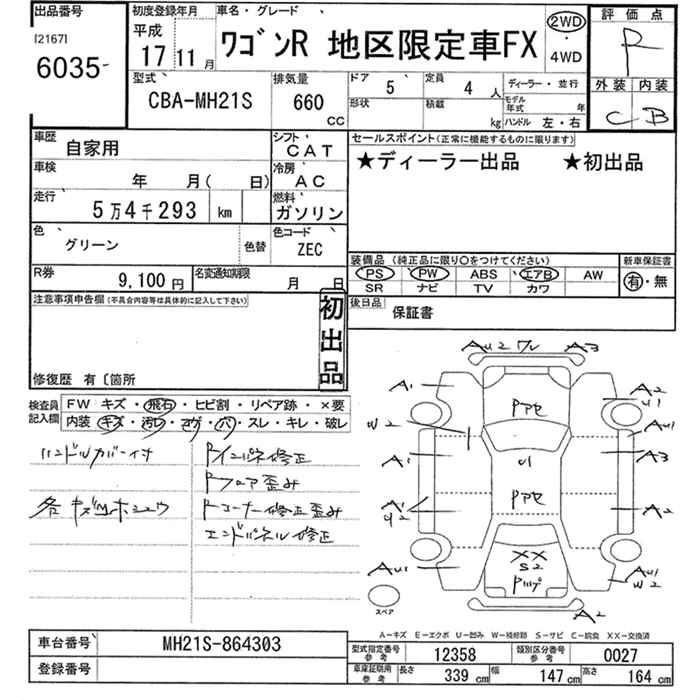 出品番号
[2167]
6035-
初度登録年月
平成
17 11 月
車名・グレード
ワゴンR 地区限定車FX
2WD
・
4WD
評価点
R
外装 内装
C B
型式
CBA-MH21S
排気量
660
CC
ドア 5
形状
定員 4 人
積載 kg
ディーラー・並行
モデル年式 年
ハンドル 左・右
車歴
自家用
シフト
CAT
車検
年 月( 日)
冷房
AC
走行
5万4千293 km
燃料
ガソリン
色
グリーン
色替
色コード
ZEC
R券
9,100 円
名変通知期限
月 日
セールスポイント(正常に機能するものに限ります)
★ディーラー出品 ★初出品
装備品 (純正品に限り○をつけてください)
PS PW ABS エアB AW
SR ナビ TV カワ
新車保証書
有・無
後日品
保証書
注意事項申告欄(不具合内容等は具体的に記入して下さい)
初出品
修復歴 有〔箇所
検査員記入欄
FW キズ・飛石・ヒビ割・リペア跡・×要
内装 キズ・汚レ・コゲ・穴・スレ・キレ・破レ
ハンドルカバー付
各キズ凹ホシュウ
Rインパネ修正
Rフロア歪み
Rコーナー修正歪み
エンドパネル修正
AU2 ワレ A3
A1
A2
U1
W2
AU1
Pアセ
U1
A1
A3
Pアセ
A1
U2
A2
AU1
XX
S2
AU1
W2
A2
スペア
A−キズ E−エクボ U−凹み W−補修跡 S−サビ C−腐食 XX−交換済
車台番号
MH21S-864303
登録番号
型式指定番号
参考
12358
類別区分番号
参考
0027
車庫証明用
参考
長さ 339 cm
幅 147 cm
高さ 164 cm